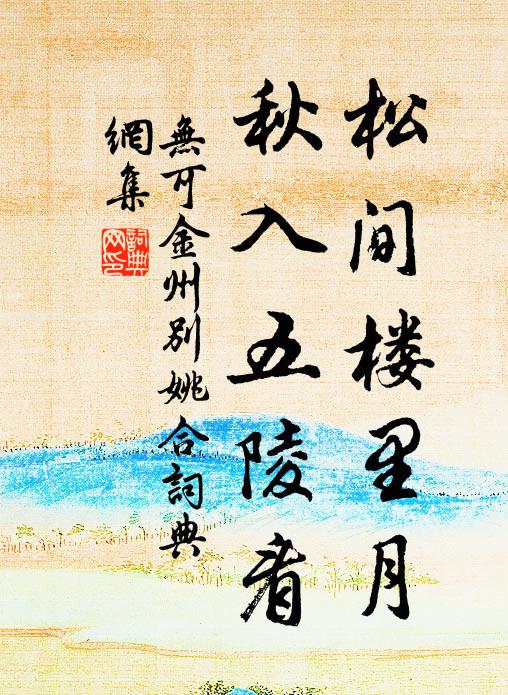 松间楼里月
秋入五陵看
無可金州别姚合詞典
網集
詞典
网印